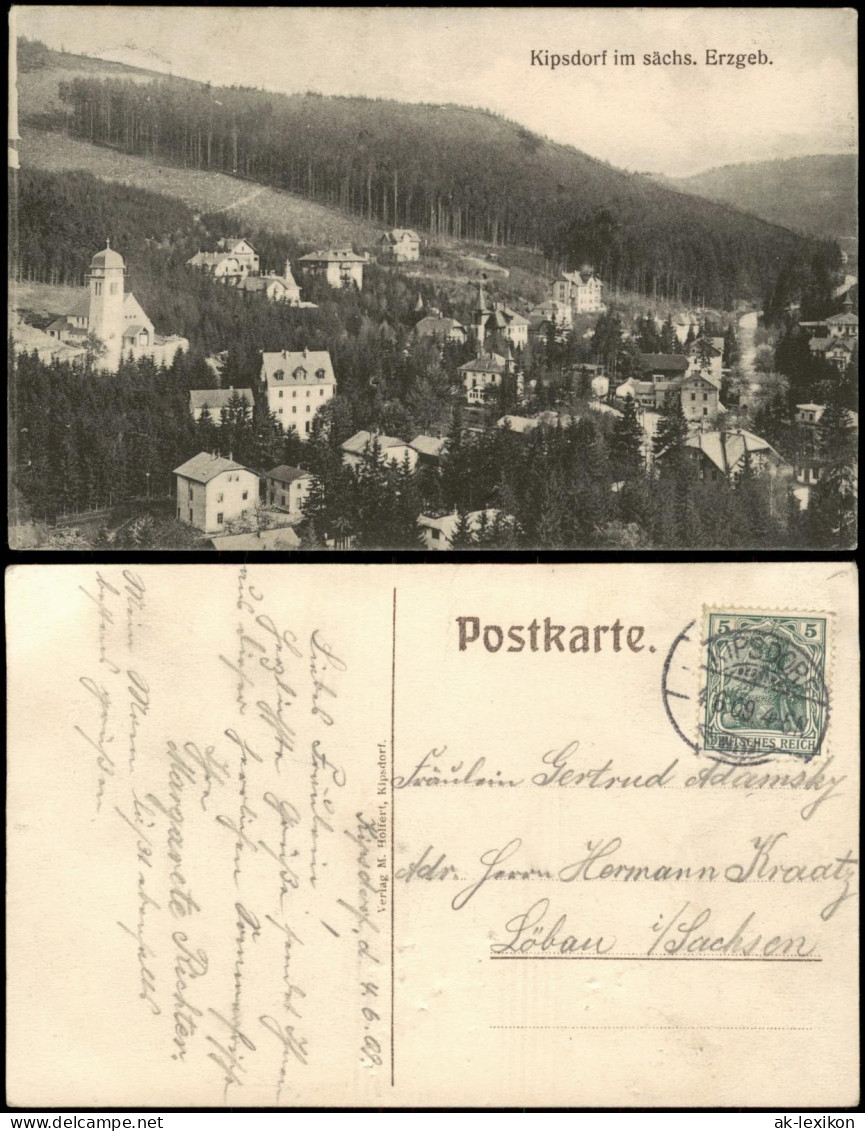 Kipsdorf im sächs. Erzgeb.
Postkarte.
5 5
KIPSDORF
4.6.09
DEUTSCHES REICH
Fräulein Gertrud Adamsky
Adr. Herrn Hermann Kraatz
Löbau i/Sachsen
Verlag M. Holfert, Kipsdorf.
Kipsdorf, d. 4.6.09.
Liebes Fräulein!
Herzlichste Grüße sendet Ihnen
aus dieser herrlichen Sommerfrische
Ihre
Margarete Richter.
Mein Mann läßt ebenfalls
bestens grüßen.
ak-lexikon